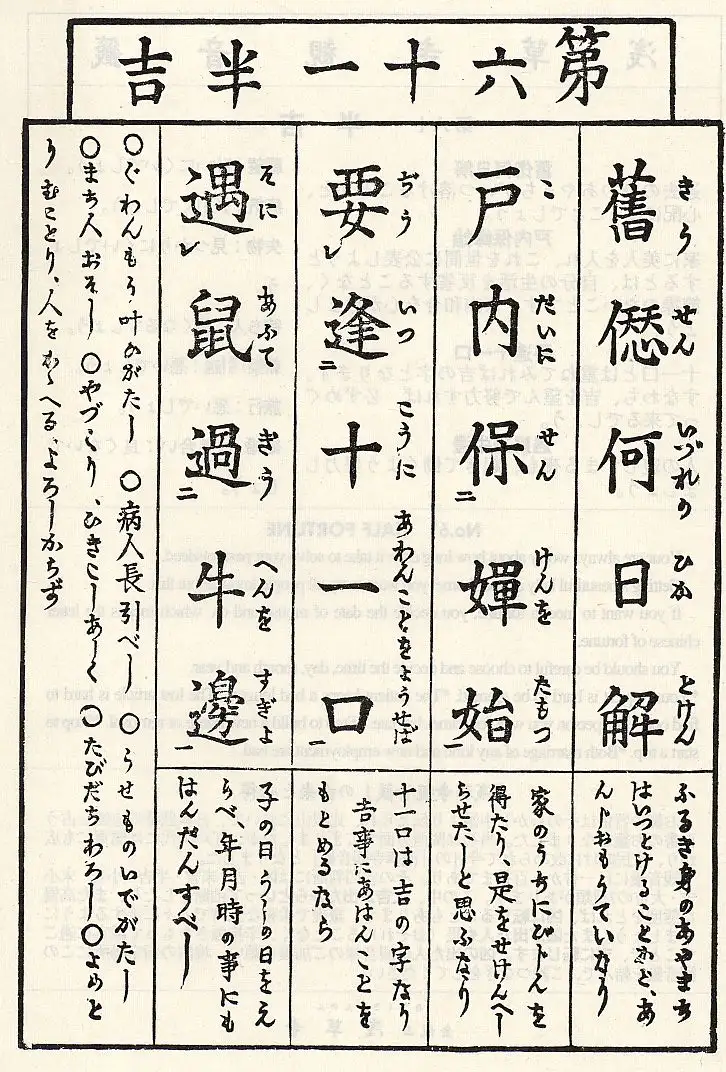 第六十一半吉
舊僁何日解
きう せん いづれの ひか とけん
ふるき身のあやまち
はいつとけるとなと、あ
んじおもうていなり
戸内保嬋始
こ だいに せん けんを たもつ
家のうちにびじんを
得たり是をせけんへし
らせたしと思ふなり
要逢十一口
ぢう いつ こうに あわんことをようせば
レ 二 一
十口は吉の字なり
吉事にあはんことを
もとめるなら
遇鼠過牛邊
そに あふて ぎう へんを すぎよ
レ 二 一
子の日うしの日をえ
らべ、年月時の事にも
はんだんすべし
〇ぐわんもう叶ひがたし 〇病人長引べし 〇うせものいでがたし
〇まち人おそし 〇やづくり、ひきこしあしく 〇たびだちわろし 〇よめと
りむことり、人をかゝへるよろしからず